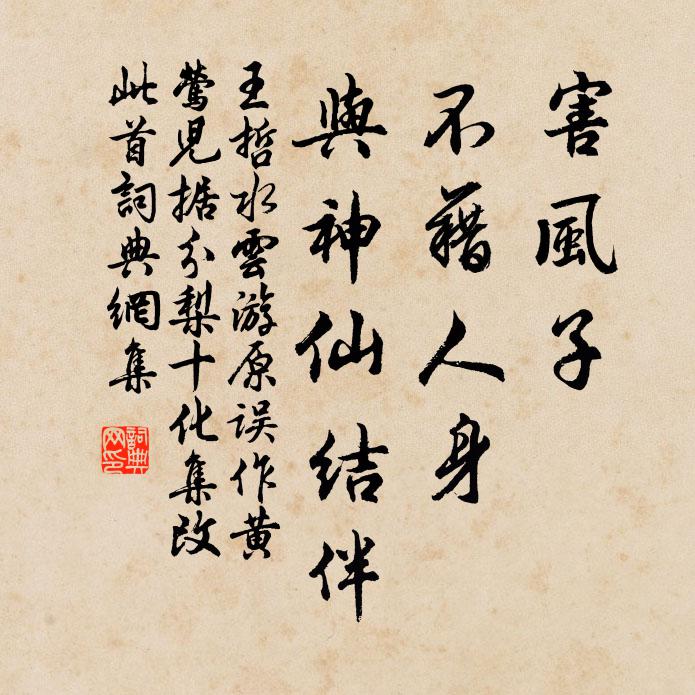 害風子
不藉人身
與神仙结伴
王哲水雲游原误作黄
鶯児据分梨十化集改
此首詞典網集
詞典
网印